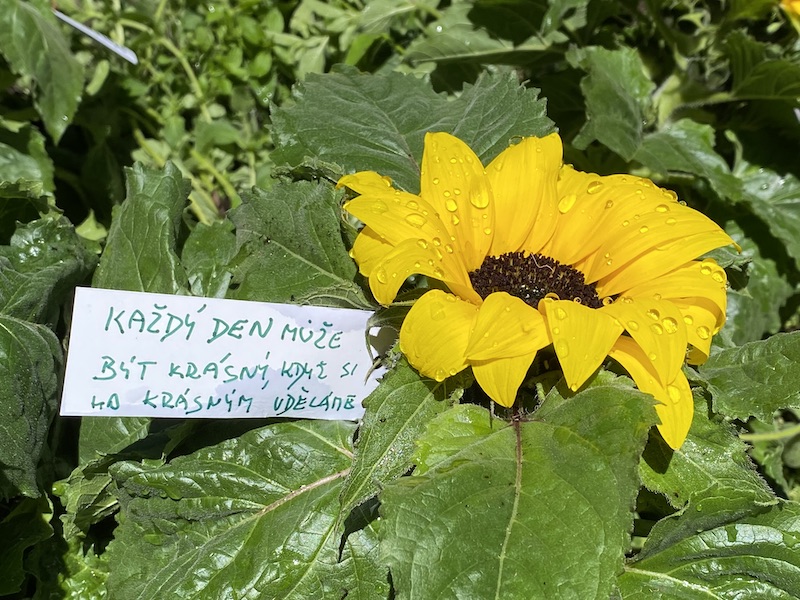 KAŽDÝ DEN MŮŽE
BÝT KRÁSNÝ, KDYŽ SI
HO KRÁSNÝM UDĚLÁME